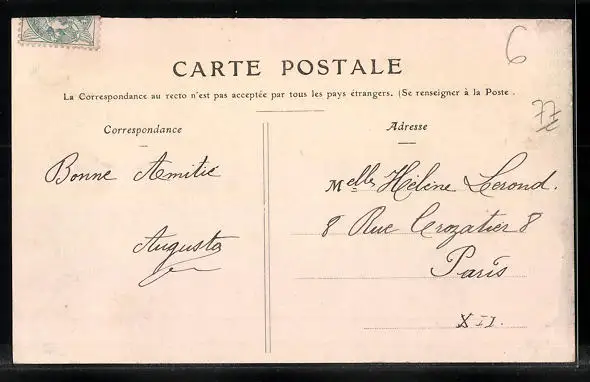 6
CARTE POSTALE
La Correspondance au recto n'est pas acceptée par tous les pays étrangers. (Se renseigner à la Poste.
77
Correspondance
Adresse
Bonne Amitié
Melle Hélène Lerond.
8 Rue Crozatier 8
Augusta
Paris
XII.